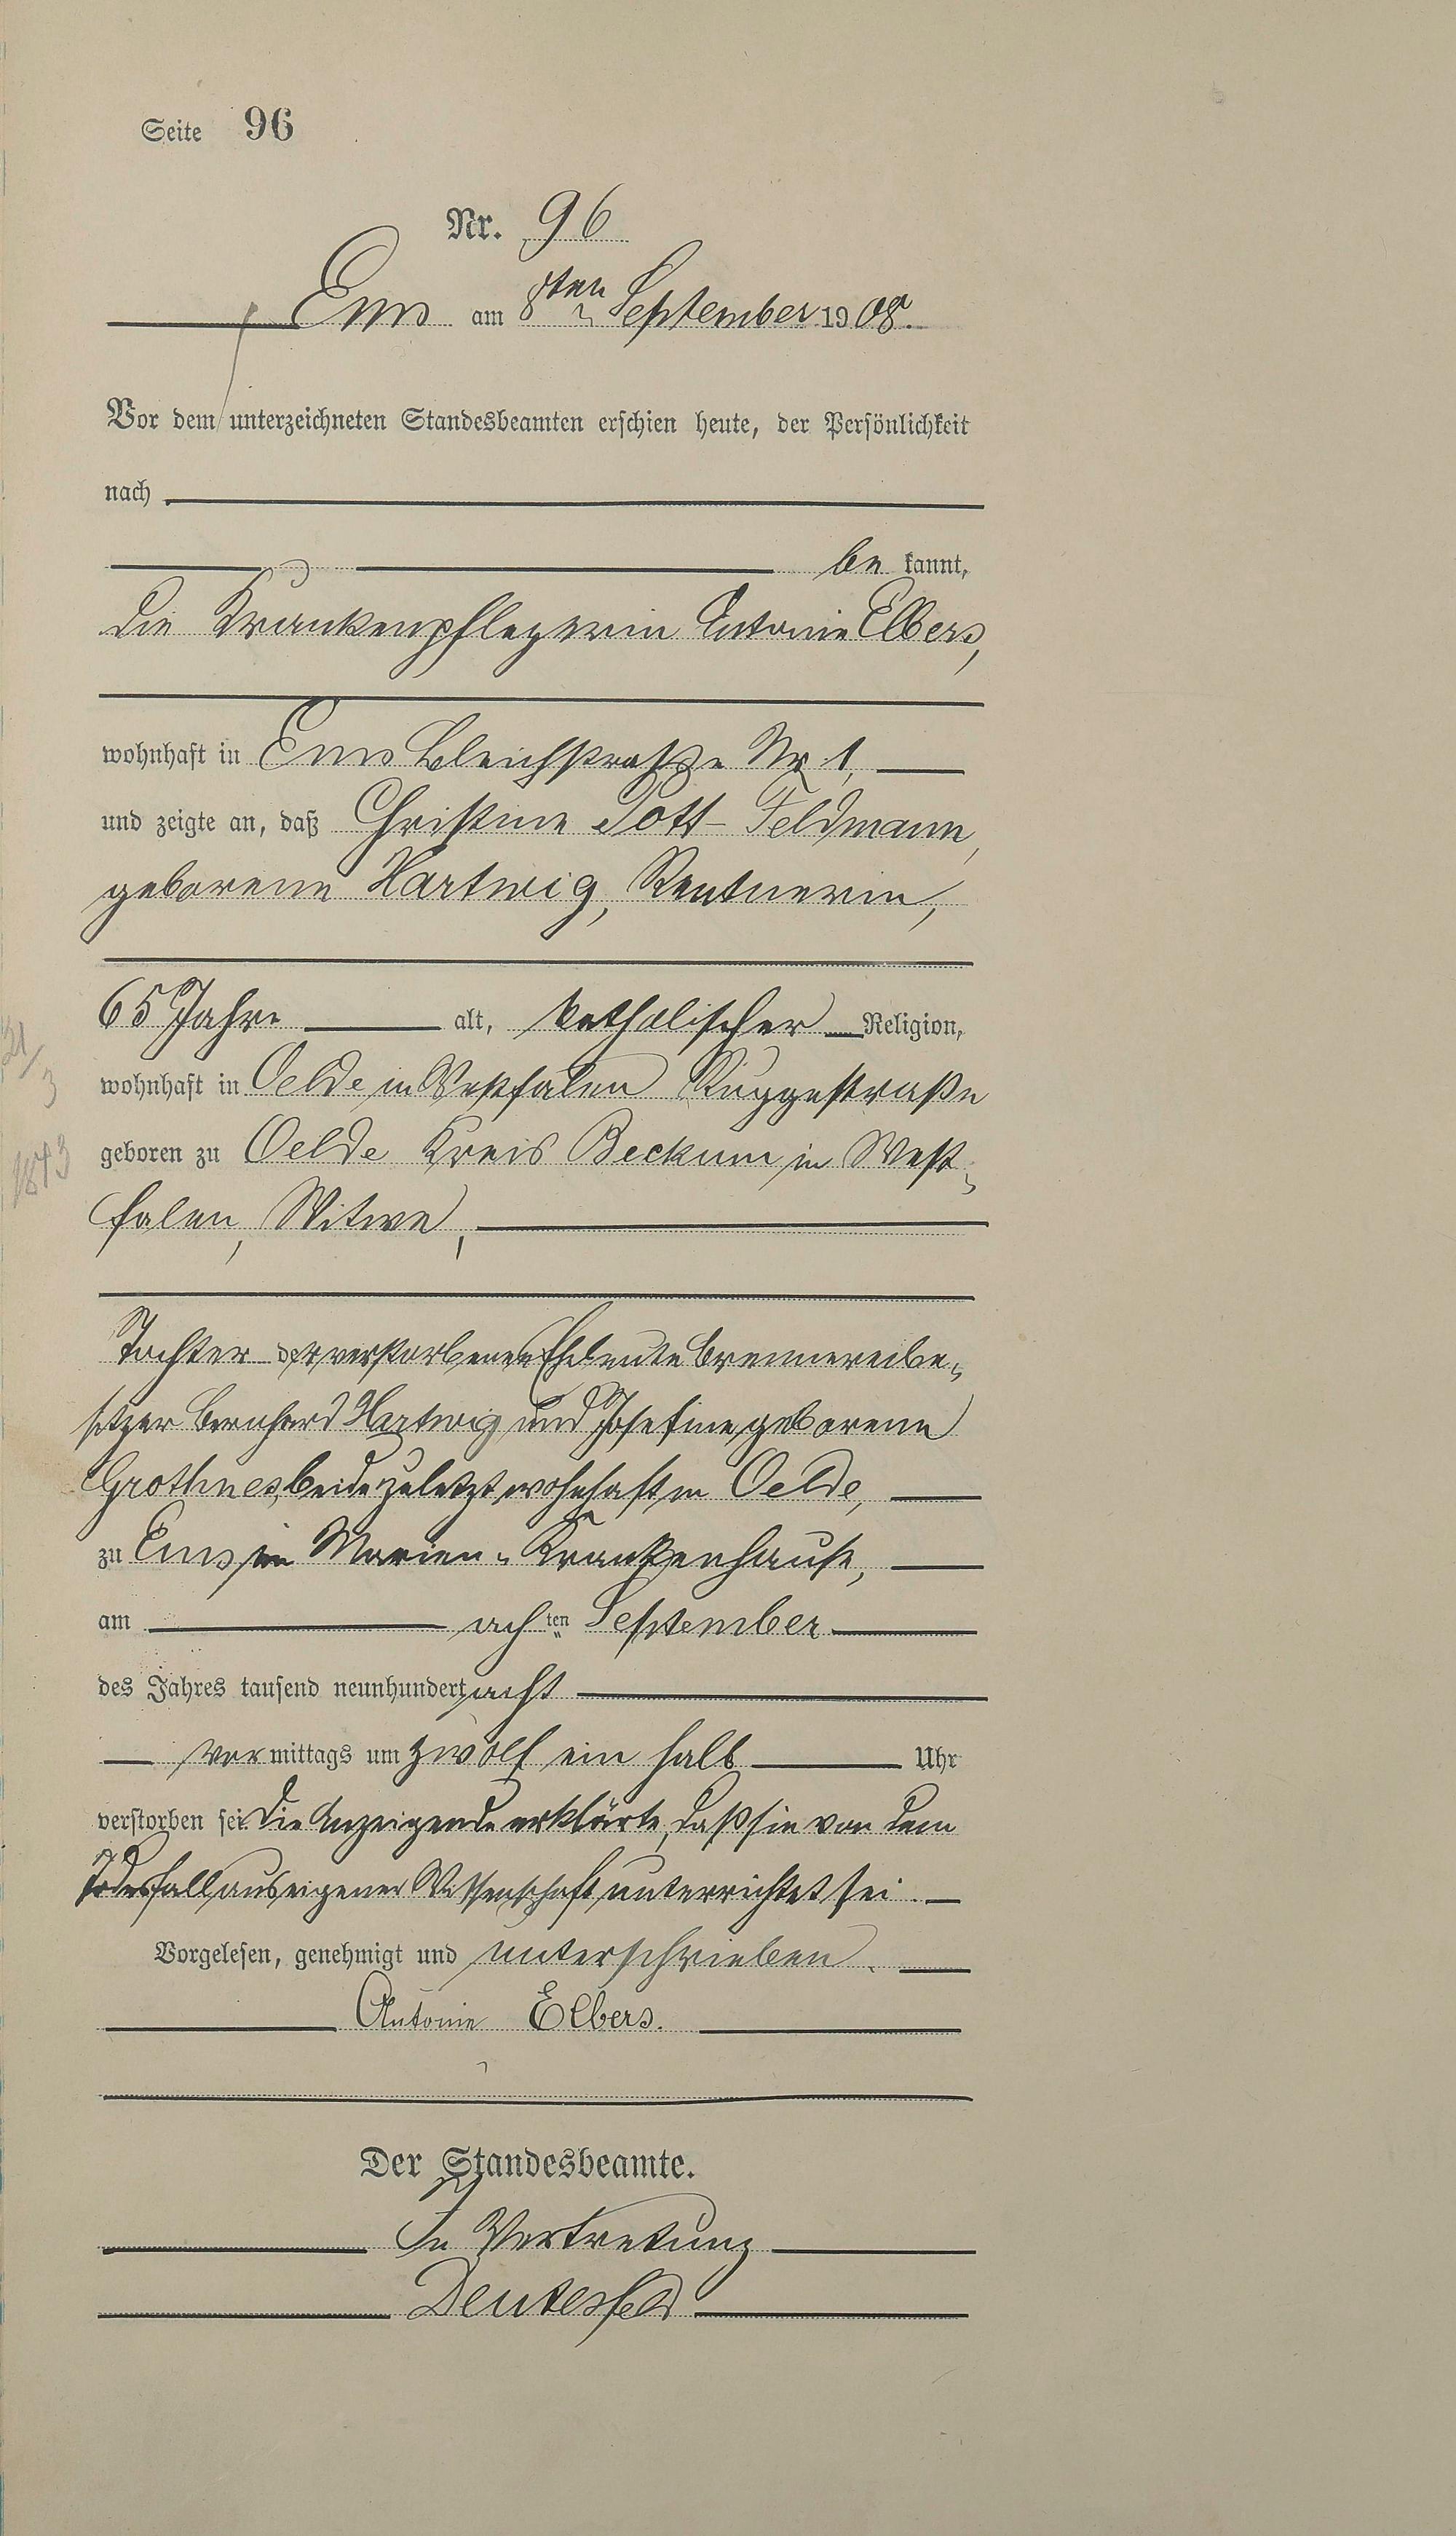 Seite 96
Nr. 96
Ems am 8ten September 1908.
Vor dem unterzeichneten Standesbeamten erschien heute, der Persönlichkeit
nach
be kannt,
die Krankenpflegerin Antonie Elbers,
wohnhaft in Ems Bleichstraße Nr 1,
und zeigte an, daß Christine Pott-Feldmann,
geborene Hartwig, Rentnerin,
65 Jahre alt, katholischer Religion,
21/3
wohnhaft in Oelde in Westfalen Ruggestraße
1843
geboren zu Oelde Kreis Beckum in West-
falen, Witwe,
Tochter der verstorbenen Eheleute Brennereibe-
sitzer Bernhard Hartwig und Josefine, geborene
Grothues, beide zuletzt wohnhaft in Oelde,
zu Ems im Marien-Krankenhause,
am achten September
des Jahres tausend neunhundert acht
vor mittags um zwölf ein halb Uhr
verstorben sei. Die Anzeigende erklärte, daß sie von dem
Todesfall aus eigener Wissenschaft unterrichtet sei.
Vorgelesen, genehmigt und unterschrieben.
Antonie Elbers.
Der Standesbeamte.
In Vertretung